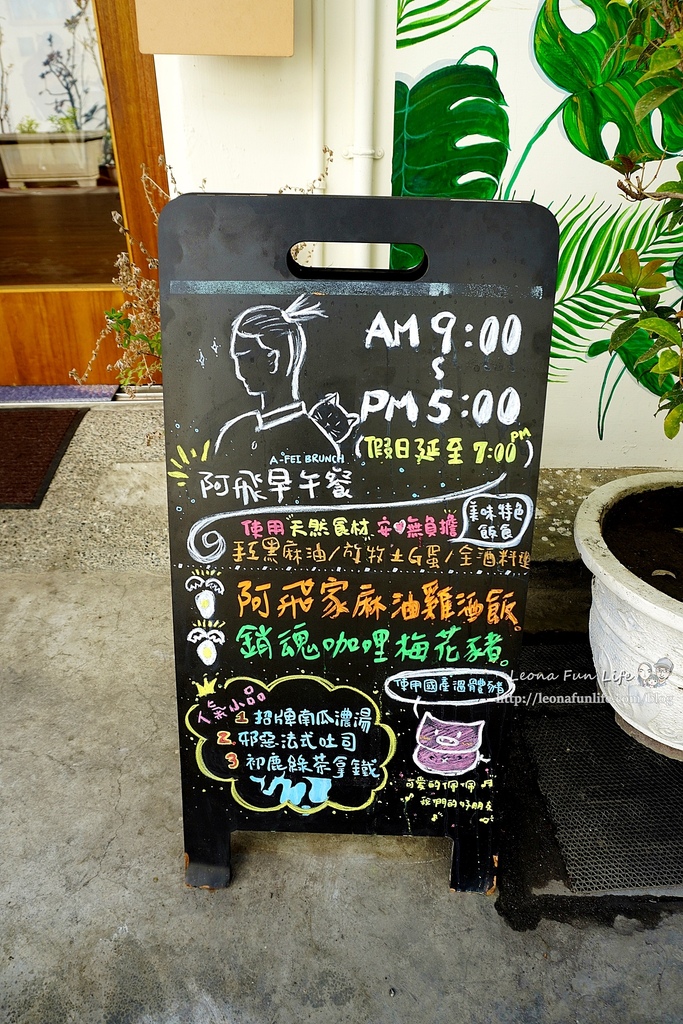 AM 9:00
~
PM 5:00
(假日延至 7:00 PM)
A-FEI BRUNCH
阿飛早午餐
美味特色
飯食
使用天然食材 安心無負擔
黑麻油/放牧土G蛋/全酒料理
阿飛家麻油雞酒飯。
銷魂咖哩梅花豬。
使用國產溫體豬
人氣小品
1 招牌南瓜濃湯
2. 邪惡法式吐司
3 初鹿綠茶拿鐵
可愛的佩佩
我們的好朋友
Leona Fun Life
http://leonafunlife.com/blog